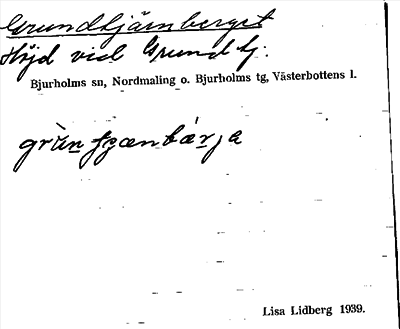 Grundtjärnberget
Höjd vid Grundtj.
Bjurholms sn, Nordmaling o. Bjurholms tg, Västerbottens l.
Lisa Lidberg 1939.